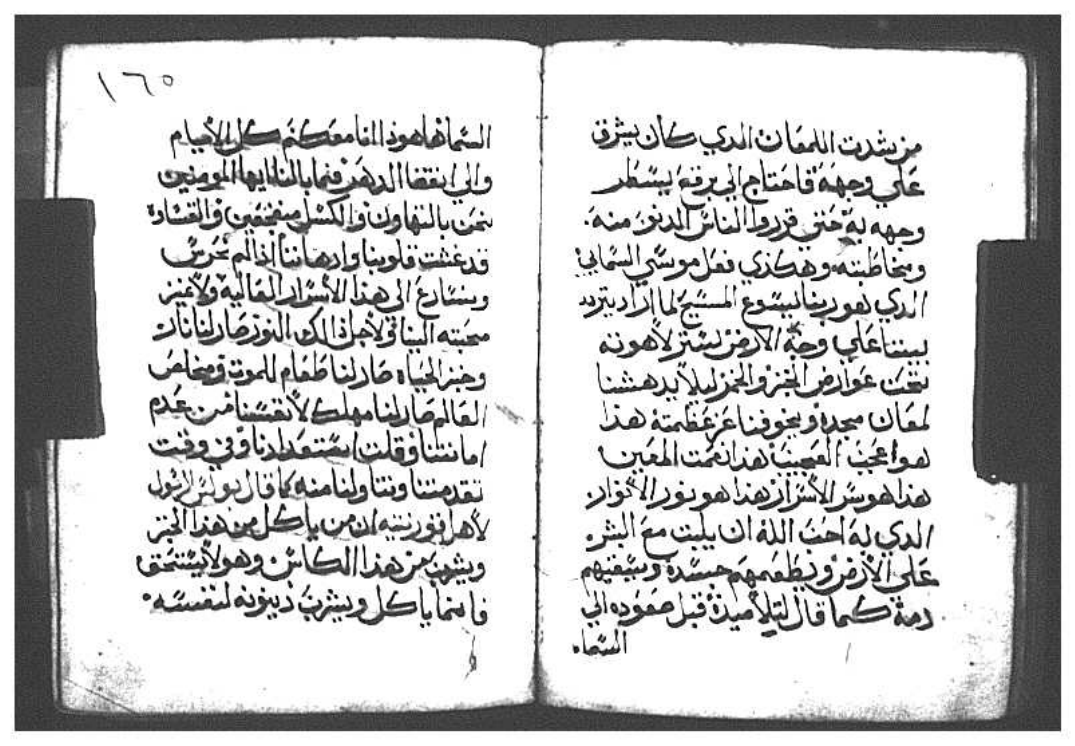 من شدت اللمعان الدي كان يشرق
علي وجهه فاحتاج الي برقع يسطر
وجهه به حتي قرروا الناس الدنو منه.
ومخاطبته وهكذي فعل موسي السماي
الدي هو ربنا يسوع المسيح لما اراد يتردد
بيننا علي وجه الارض استتر لاهوته
تحت عوارض الخبز والخمر ليلا يدهشنا
لمعان مجده ويخوفنا عز عظمته هدا
هو اعجب العجيب هدا نعمت المعين
هدا هو سر الاسرار هدا هو نور الانوار
الدي به احب الله ان يلبت مع البشر
علي الارض ويطعمهم جسده ويسقيهم
دمه كما قال لتلاميده قبل صعوده الي
السماء
١٦٥
السما هاهودا انا معكم كل الايام
والي انقضا الدهر فما بالنا ايها المومنين
نحن بالتهاون والكسل منغمقين والقساوه
قد غشت قلوبنا وادهاننا اذا لم نحرس
ونسارع الي هدا الاسرار العاليه ولا نميز
محبته الينا ولاجل ذالك النور صار لنا نار
وخبز الحياه صار لنا طعام للموت ومخلص
العالم صار لنا مهلك لانفسنا من عدم
امانتنا وقلت استعدادنا وفي وقت
تقدمتنا وتناولنا منه كما قال بولس الرسول
لاهل قورنتيه ان من ياكل من هدا الخبز
ويشرب من هدا الكاس وهو لا يستحق
فانما ياكل ويشرب دينونه لنفسه.